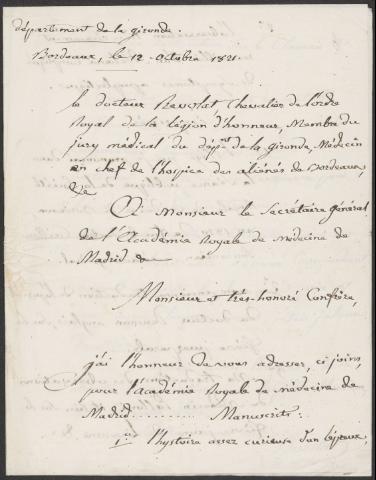 département de la gironde.
Bordeaux, le 12 octobre 1821.
Le docteur Revolat, Chevalier de l'ordre
Royal de la légion d'honneur, Membre du
jury médical du dépt. de la gironde, Médecin
en chef de l'hospice des aliénés de Bordeaux,
&c
A Monsieur le Secrétaire général
de l'Académie Royale de médecine de
Madrid &c
Monsieur et très-honoré Confrère,
j'ai l'honneur de vous adresser, ci joins,
pour l'académie Royale de médecine de
Madrid ......... Manuscrits:
1° l'hystoire assez curieuse d'un lépreux,